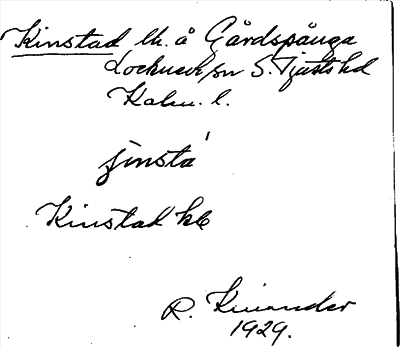 Kinstad lh. å Gårdspånga
Locknevi sn S. Tjusts hd
Kalm. l.
jinsta
Kinstad kb
R. Kinander
1929.